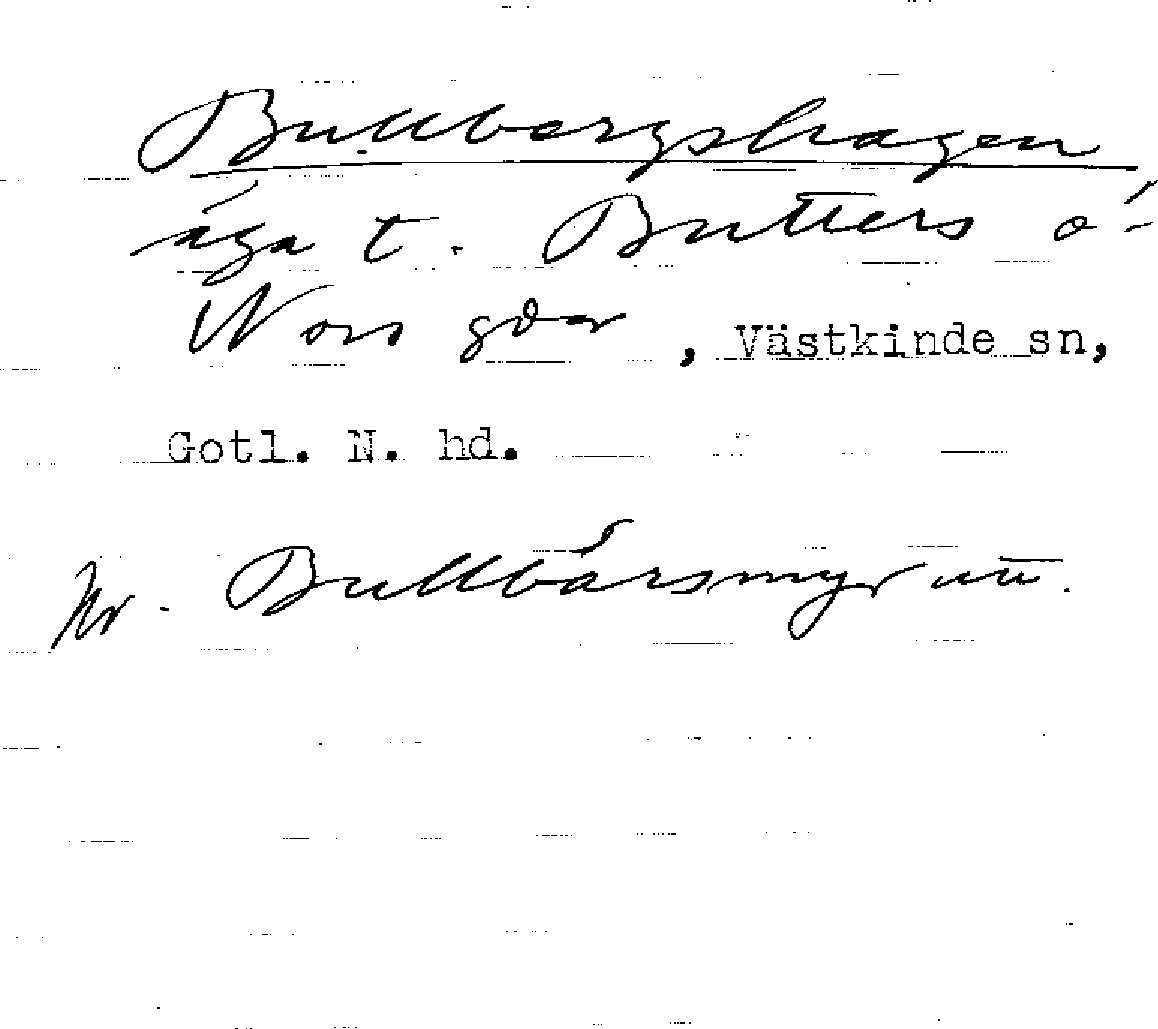 Bullbergshagen
äga t. Butters o.
Nors gdar, Västkinde sn,
Gotl. N. hd.
Nr. Bullbårsmyr